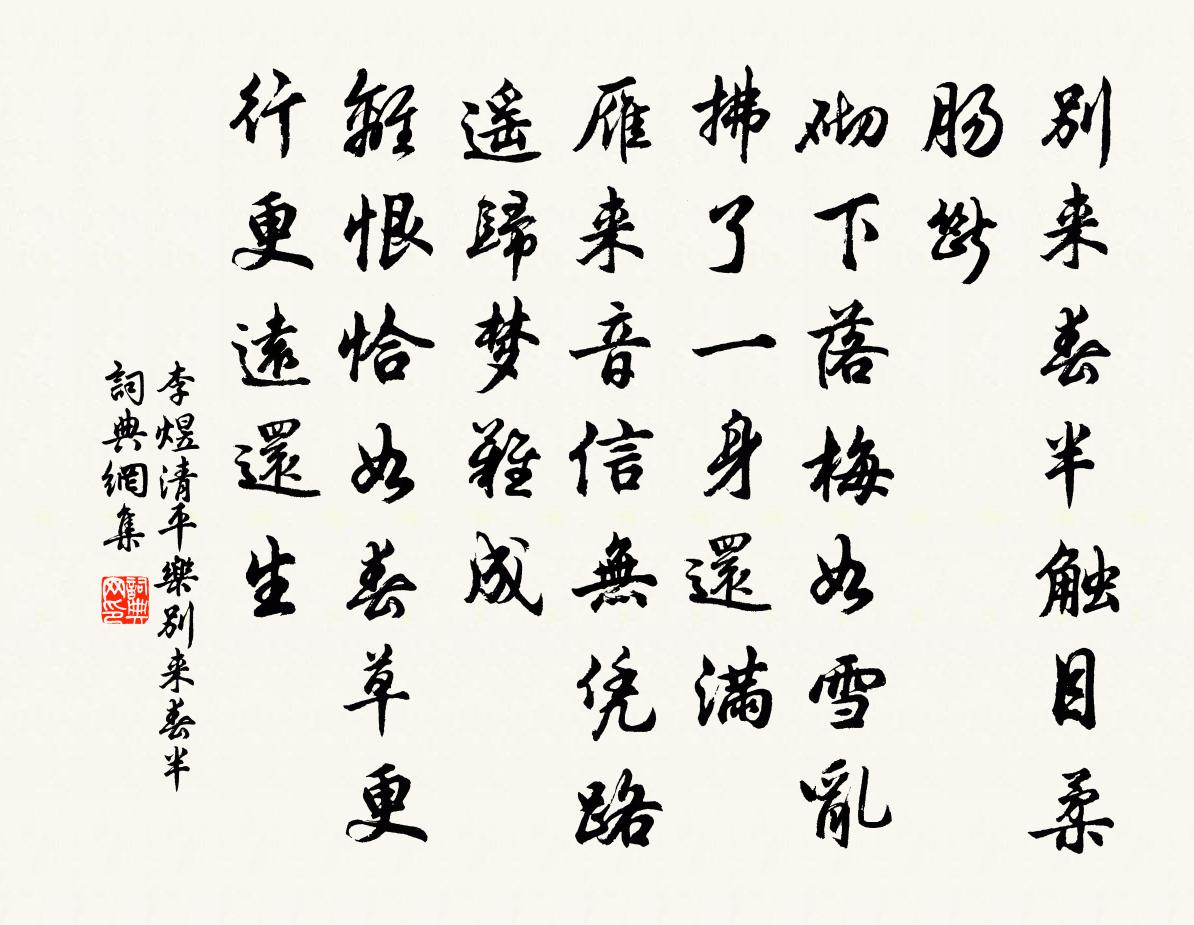 别来春半触目柔
肠断
砌下落梅如雪亂
拂了一身還满
雁来音信無凭路
遥歸梦難成
離恨恰如春草更
行更遠還生
李煜清平樂别来春半
詞典網集
詞典网印